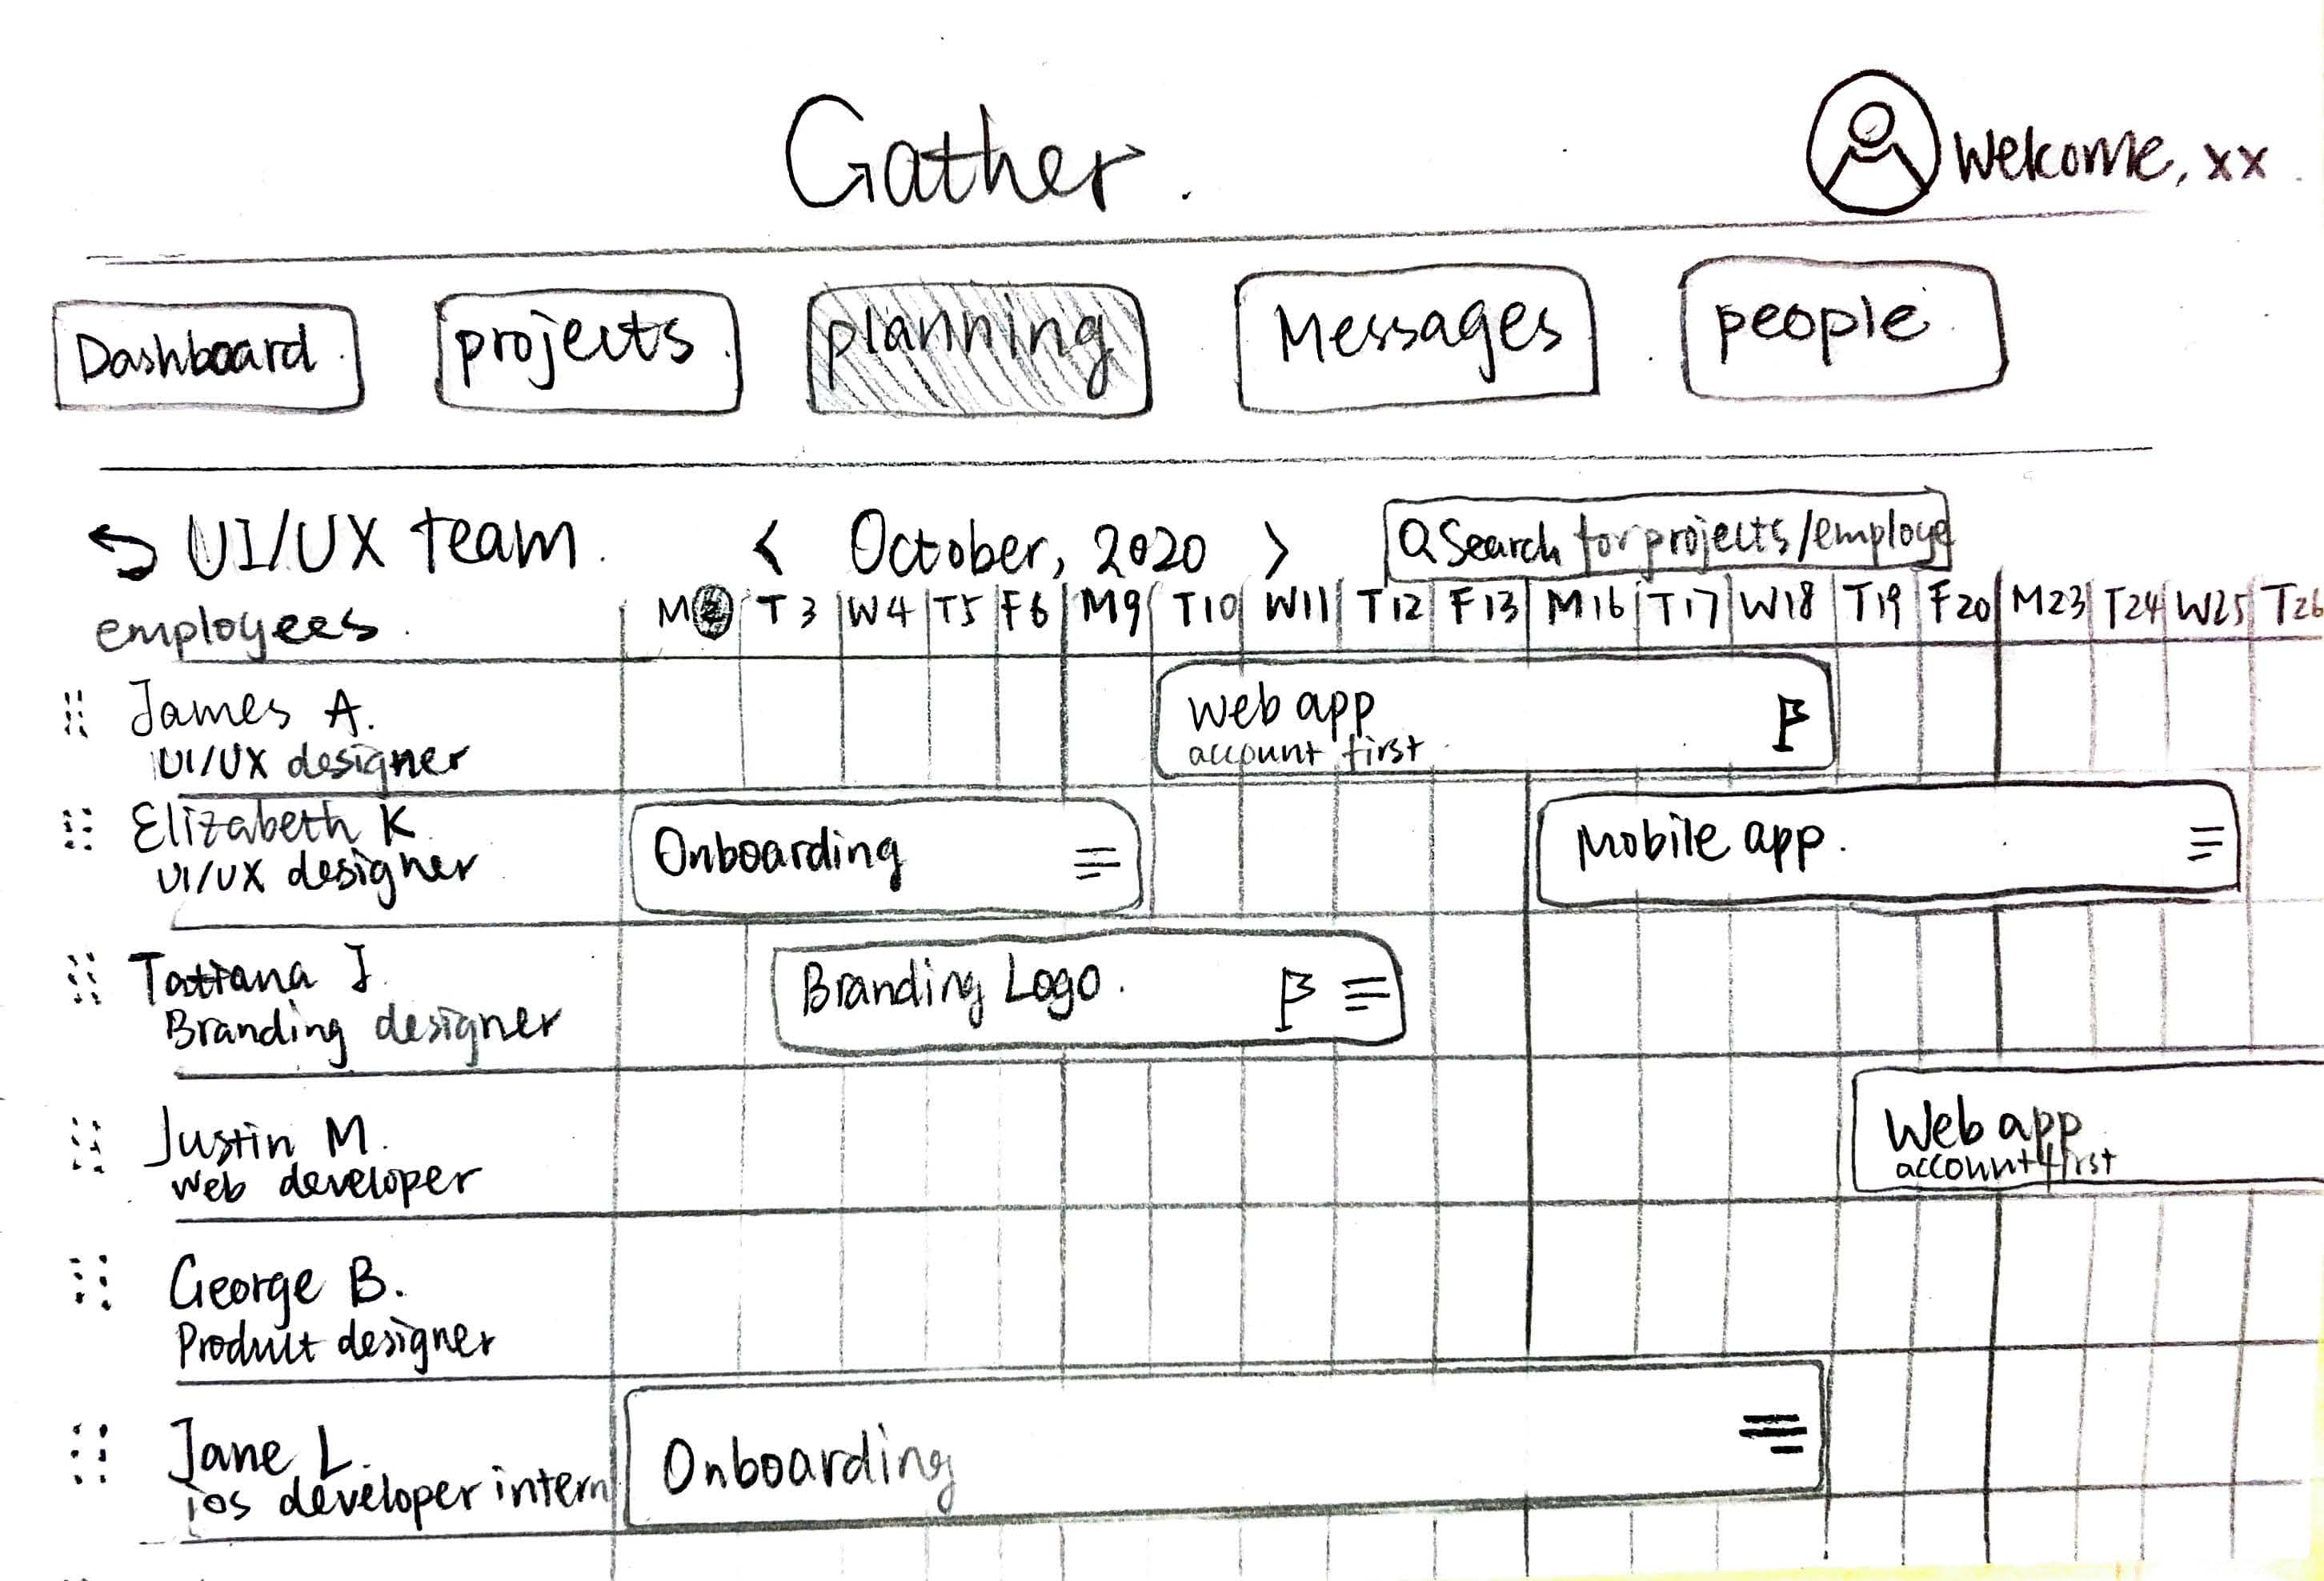 Gather.
Welcome, xx
Dashboard
projects
planning
Messages
people
UI/UX team.
< October, 2020 >
Search for projects/employe
employees
M2 T3 W4 T5 F6 M9 T10 W11 T12 F13 M16 T17 W18 T19 F20 M23 T24 W25 T26
James A.
UI/UX designer
Web app
account first
Elizabeth K.
UI/UX designer
Onboarding
Mobile app.
Tatiana J.
Branding designer
Branding Logo.
Justin M.
Web developer
Web app
account first
George B.
Product designer
Jane L.
ios developer intern
Onboarding